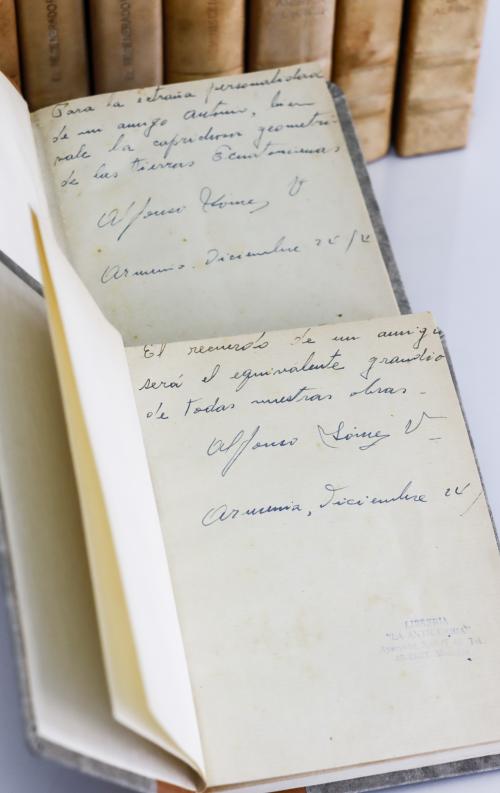 EL REGENERADOR
Para la extraña personalidad
de mi amigo Antonio,
vale la caprichosa geometrí
de las tierras Ecuatorianas
Alfonso Gómez V
Armenia. Diciembre 24/
El recuerdo de un amigo
será el equivalente grandio
de todas nuestras obras.
Alfonso Gómez V
Armenia, Diciembre 24/
LIBRERIA
"LA ANTICUARIA"